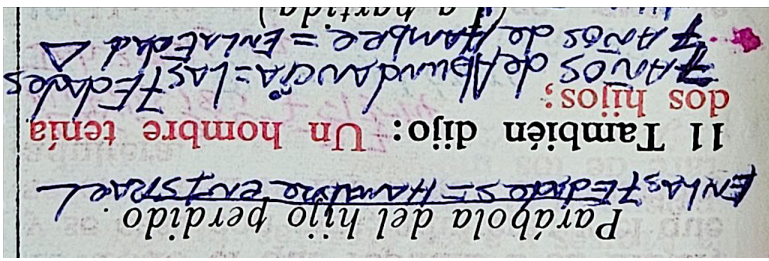 Parábola del hijo perdido.
EN LAS 7 EDADES = HAMBRE EN ISRAEL
11 También dijo: Un hombre tenía
dos hijos;
7 AÑOS de AbuNdANCIA = LAS 7 Edades
7 AÑOS de HAMBRE = EN LA EDAD